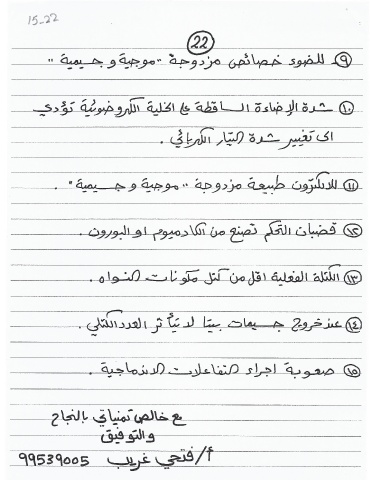 15-22
22
٩ للضوء خصائص مزدوجة "موجية و جسيمية"
١٠ شدة الإضاءة الساقطة على الخلية الكهروضوئية تؤدي
الى تغيير شدة التيار الكهربائي .
١١ للالكترون طبيعة مزدوجة "موجية و جسيمية" .
١٢ قضبان التحكم تصنع من الكادميوم او البورون .
١٣ الكتلة الفعلية اقل من كتل مكونات النواه .
١٤ عند خروج جسيمات بيتا لا يتأثر العدد الكتلي .
١٥ صعوبة اجراء التفاعلات الاندماجية .
مع خالص تمنياتي بالنجاح
والتوفيق
أ/فتحي غريب 99539005